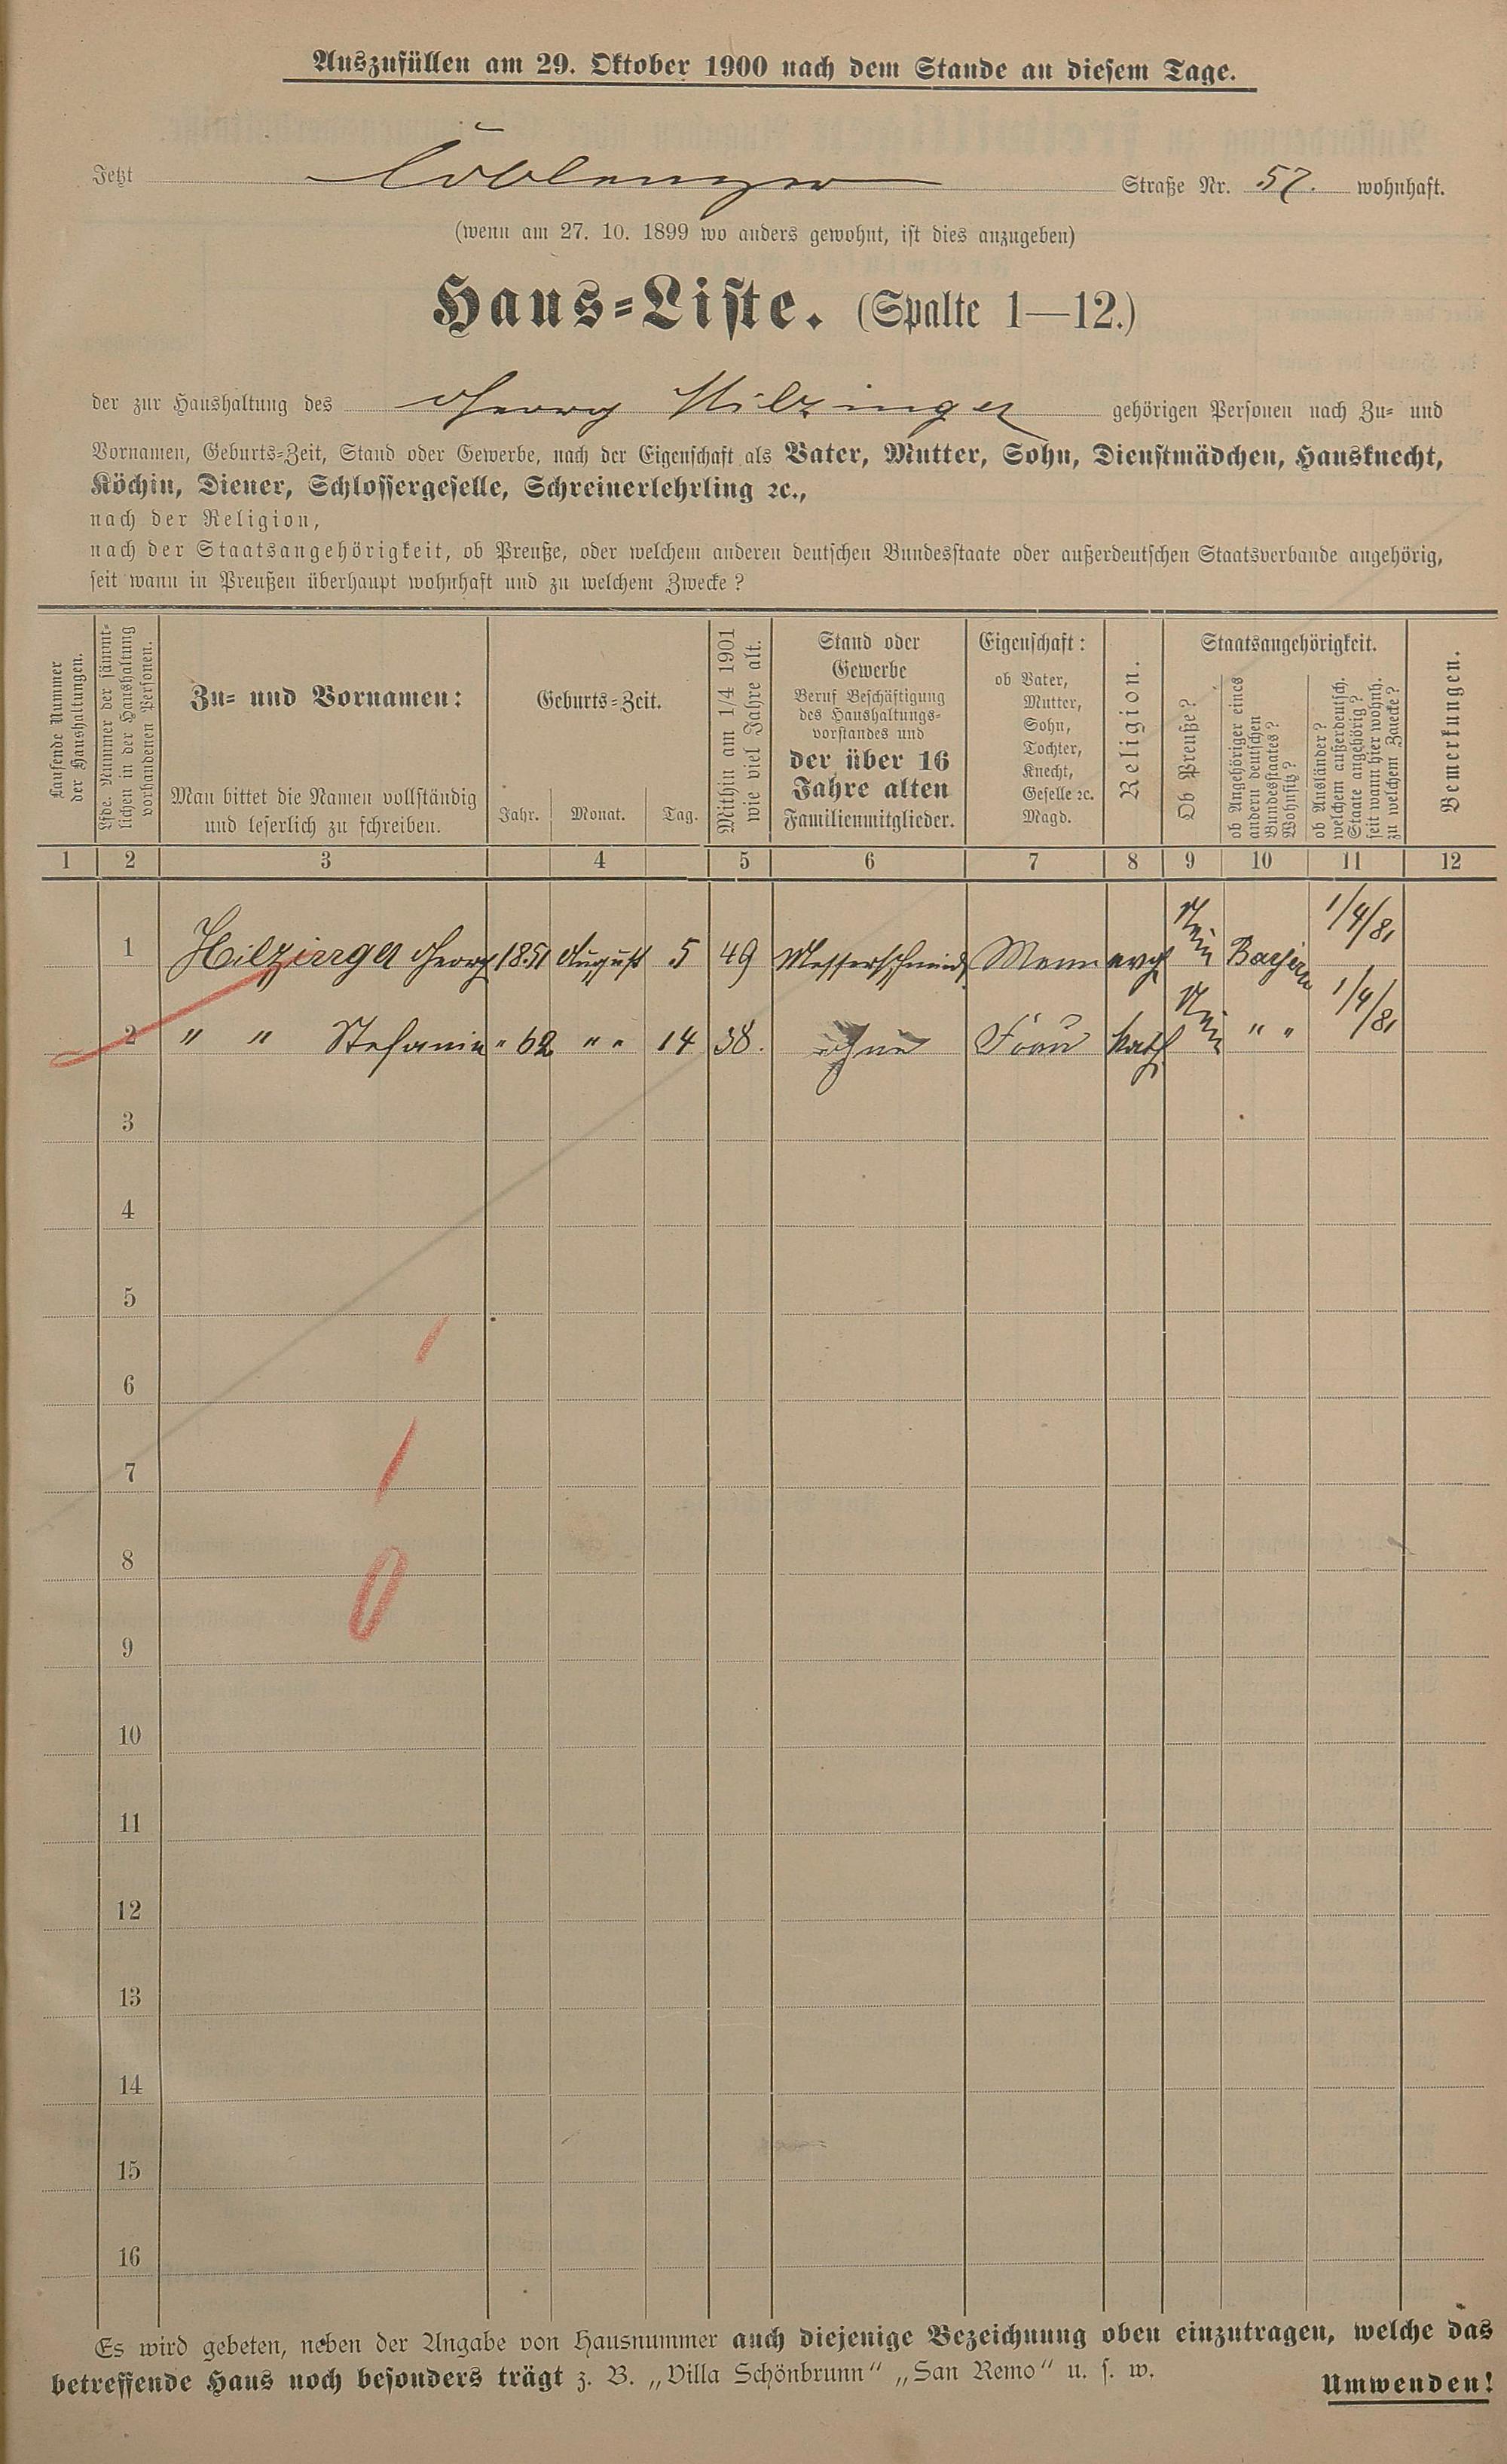 Auszufüllen am 29. Oktober 1900 nach dem Stande an diesem Tage.
Jetzt Coblenzer Straße Nr. 57. wohnhaft.
(wenn am 27. 10. 1899 wo anders gewohnt, ist dies anzugeben)
Haus-Liste. (Spalte 1—12.)
der zur Haushaltung des Georg Hilzinger gehörigen Personen nach Zu- und
Vornamen, Geburts-Zeit, Stand oder Gewerbe, nach der Eigenschaft als Vater, Mutter, Sohn, Dienstmädchen, Hausknecht,
Köchin, Diener, Schlossergeselle, Schreinerlehrling ꝛc.,
nach der Religion,
nach der Staatsangehörigkeit, ob Preuße, oder welchem anderen deutschen Bundesstaate oder außerdeutschen Staatsverbande angehörig,
seit wann in Preußen überhaupt wohnhaft und zu welchem Zwecke?
Laufende Nummer
der Haushaltungen.
Lfde. Nummer der sämmt-
lichen in der Haushaltung
vorhandenen Personen.
Zu- und Vornamen:
Man bittet die Namen vollständig
und leserlich zu schreiben.
Geburts-Zeit.
Jahr. Monat. Tag.
Mithin am 1/4 1901
wie viel Jahre alt.
Stand oder
Gewerbe
Beruf Beschäftigung
des Haushaltungs-
vorstandes und
der über 16
Jahre alten
Familienmitglieder.
Eigenschaft:
ob Vater,
Mutter,
Sohn,
Tochter,
Knecht,
Geselle ꝛc.
Magd.
Religion.
Staatsangehörigkeit.
Ob Preuße?
ob Angehöriger eines
andern deutschen
Bundesstaates?
Wohnsitz?
ob Ausländer?
welchem außerdeutsch.
Staate angehörig?
seit wann hier wohnh.
zu welchem Zwecke?
Bemerkungen.
1 2 3 4 5 6 7 8 9 10 11 12
1 Hilzinger Georg 1851 August 5 49 Messerschmied Mann evgl Nein Bayern 1/4/81
2 " " Stefanie " 62 " " 14 38. ohne Frau kath Nein " " 1/4/81
3
4
5
6
7
8
9
10
11
12
13
14
15
16
Es wird gebeten, neben der Angabe von Hausnummer auch diejenige Bezeichnung oben einzutragen, welche das
betreffende Haus noch besonders trägt z. B. „Villa Schönbrunn" „San Remo" u. s. w.
Umwenden!